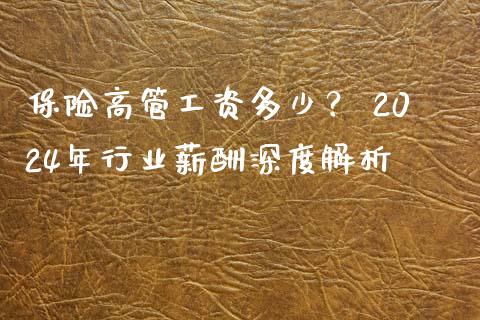 保险高管工资多少? 20
24年行业薪酬深度解析